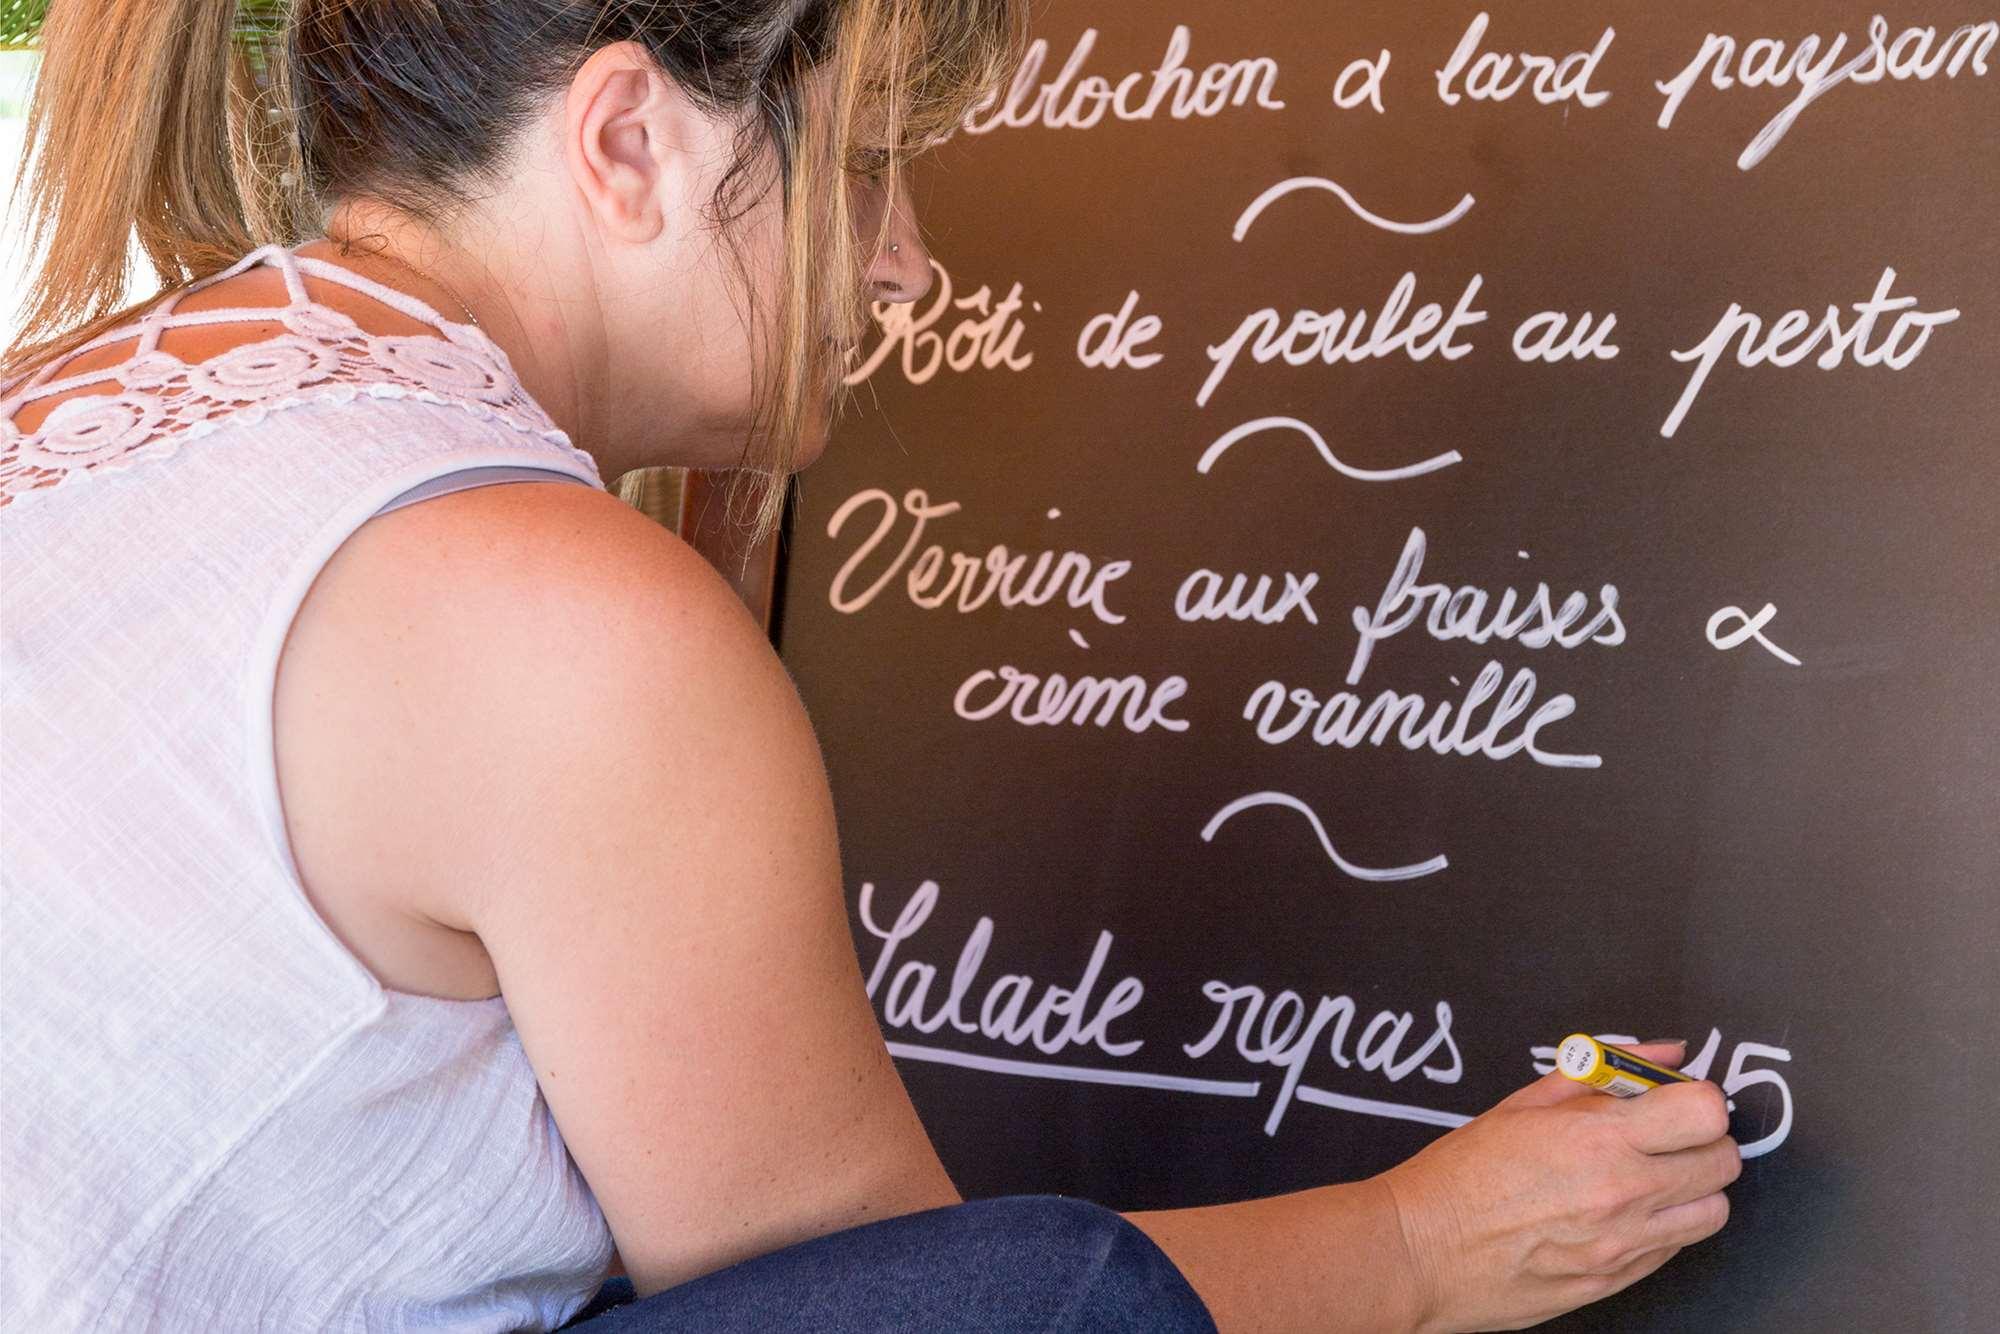 eblochon & lard paysan
Rôti de poulet au pesto
Verrine aux fraises &
crème vanille
Salade repas = 15